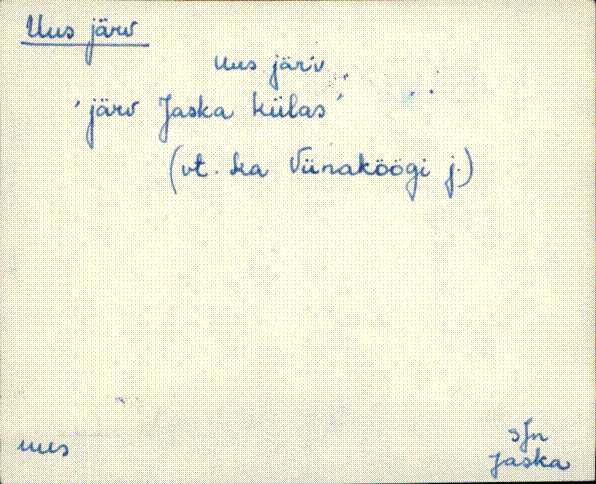 Uus järv
Uus järv
'järv Jaska külas'
(vt. ka Viinaköögi j.)
uus
SJn
Jaska